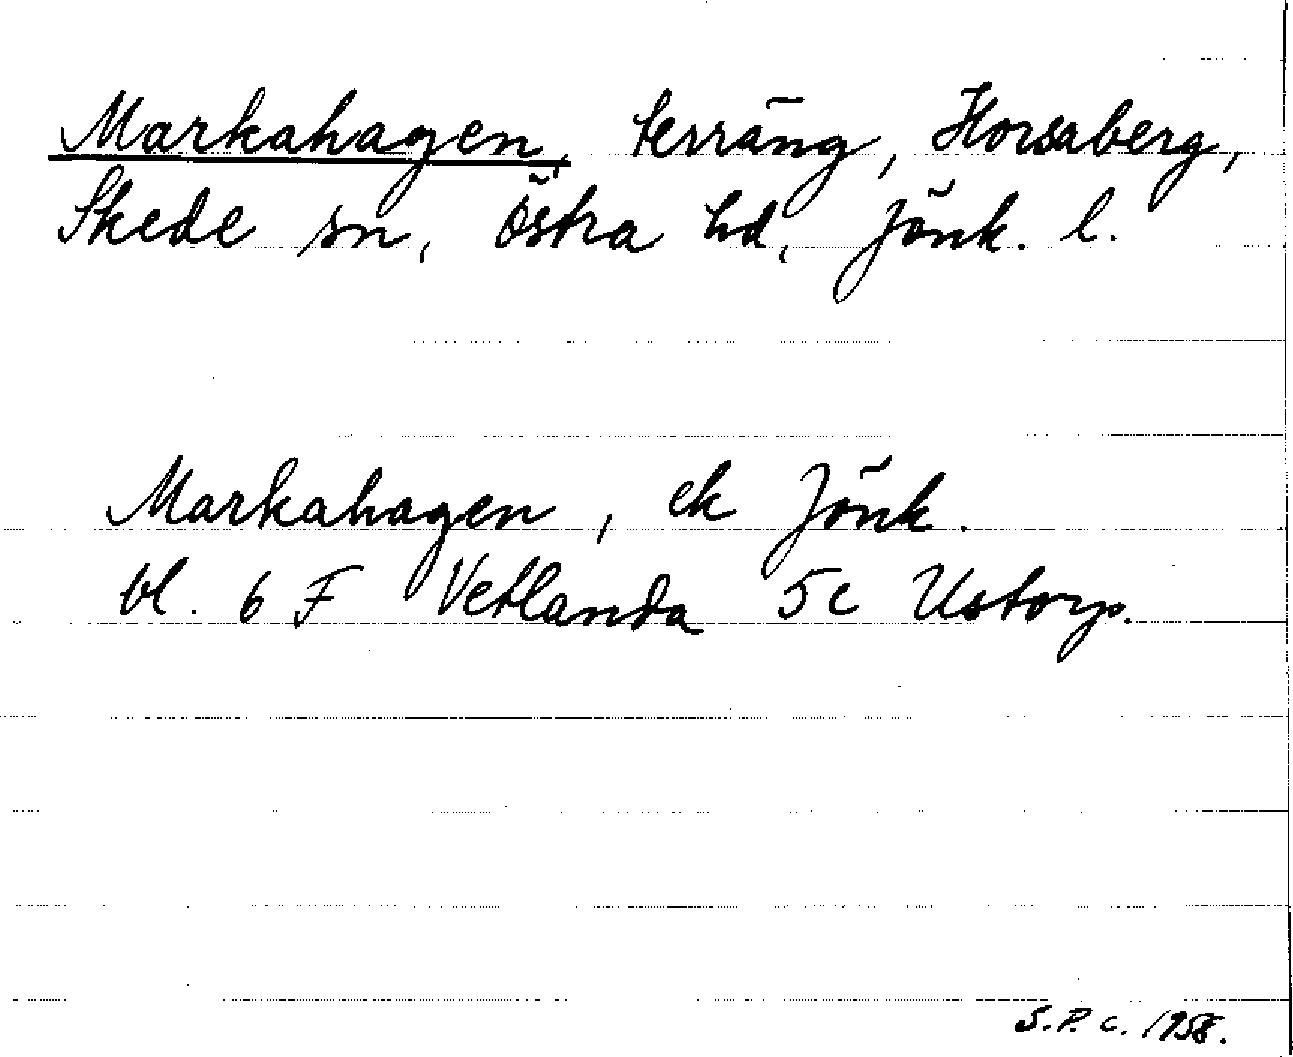 Markahagen, terräng, Horsaberg,
Skede sn, Östra hd, Jönk. l.
Markahagen, ek Jönk.
bl. 6 F Vetlanda 5c Ustorp.
S.P.C. 1958.